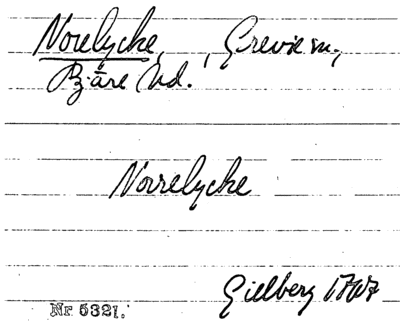 Norelycke, , Grevie sn.,
Bjäre hd.
Norrelycke
Gillberg 1767
Nr 5321.